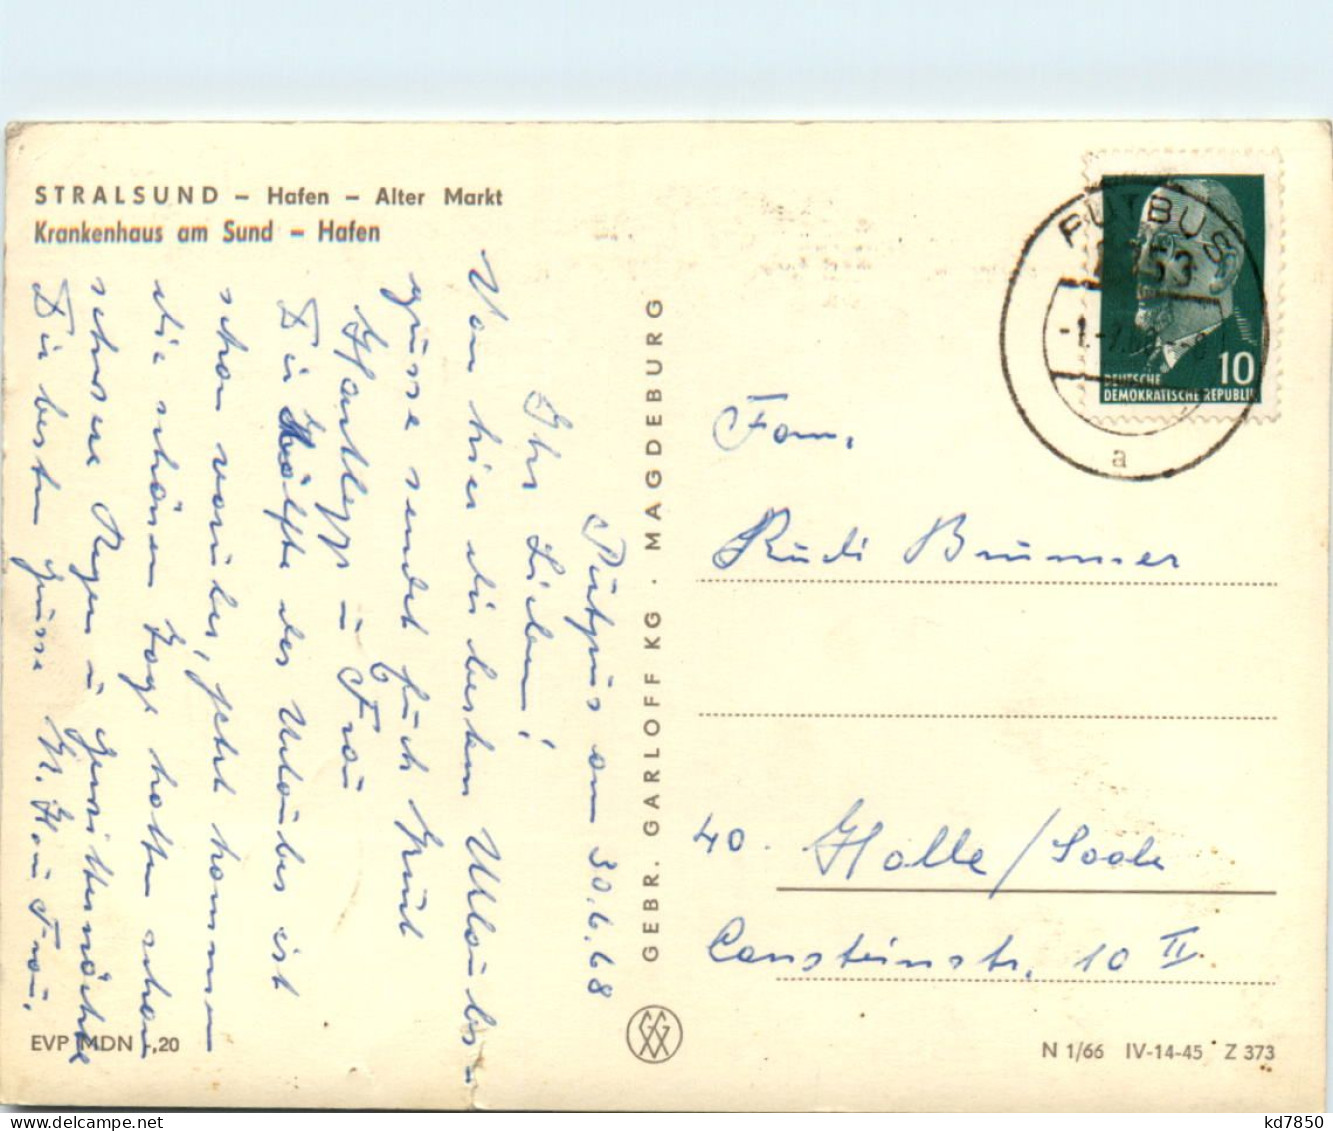 STRALSUND – Hafen – Alter Markt
Krankenhaus am Sund – Hafen
Putpus am 30.6.68
Ihr Lieben!
Von hier die besten Urlaubs-
grüsse sendet Euch Knut
Hartlepp u Frau
Die Hälfte des Urlaubes ist
schon vorüber, jetzt kommen
die schönen Tage hatten schon
schwere Regen u Gewitternächte
Die besten Grüsse K. H. u Frau.
EVP MDN -,20
GEBR. GARLOFF KG · MAGDEBURG
PUTBUS
10
DEUTSCHE
DEMOKRATISCHE REPUBLIK
a
Fam.
Rudi Brunner
40. Halle/Saale
Cansteinstr. 10 II
N 1/66 IV-14-45 Z 373
kd7850